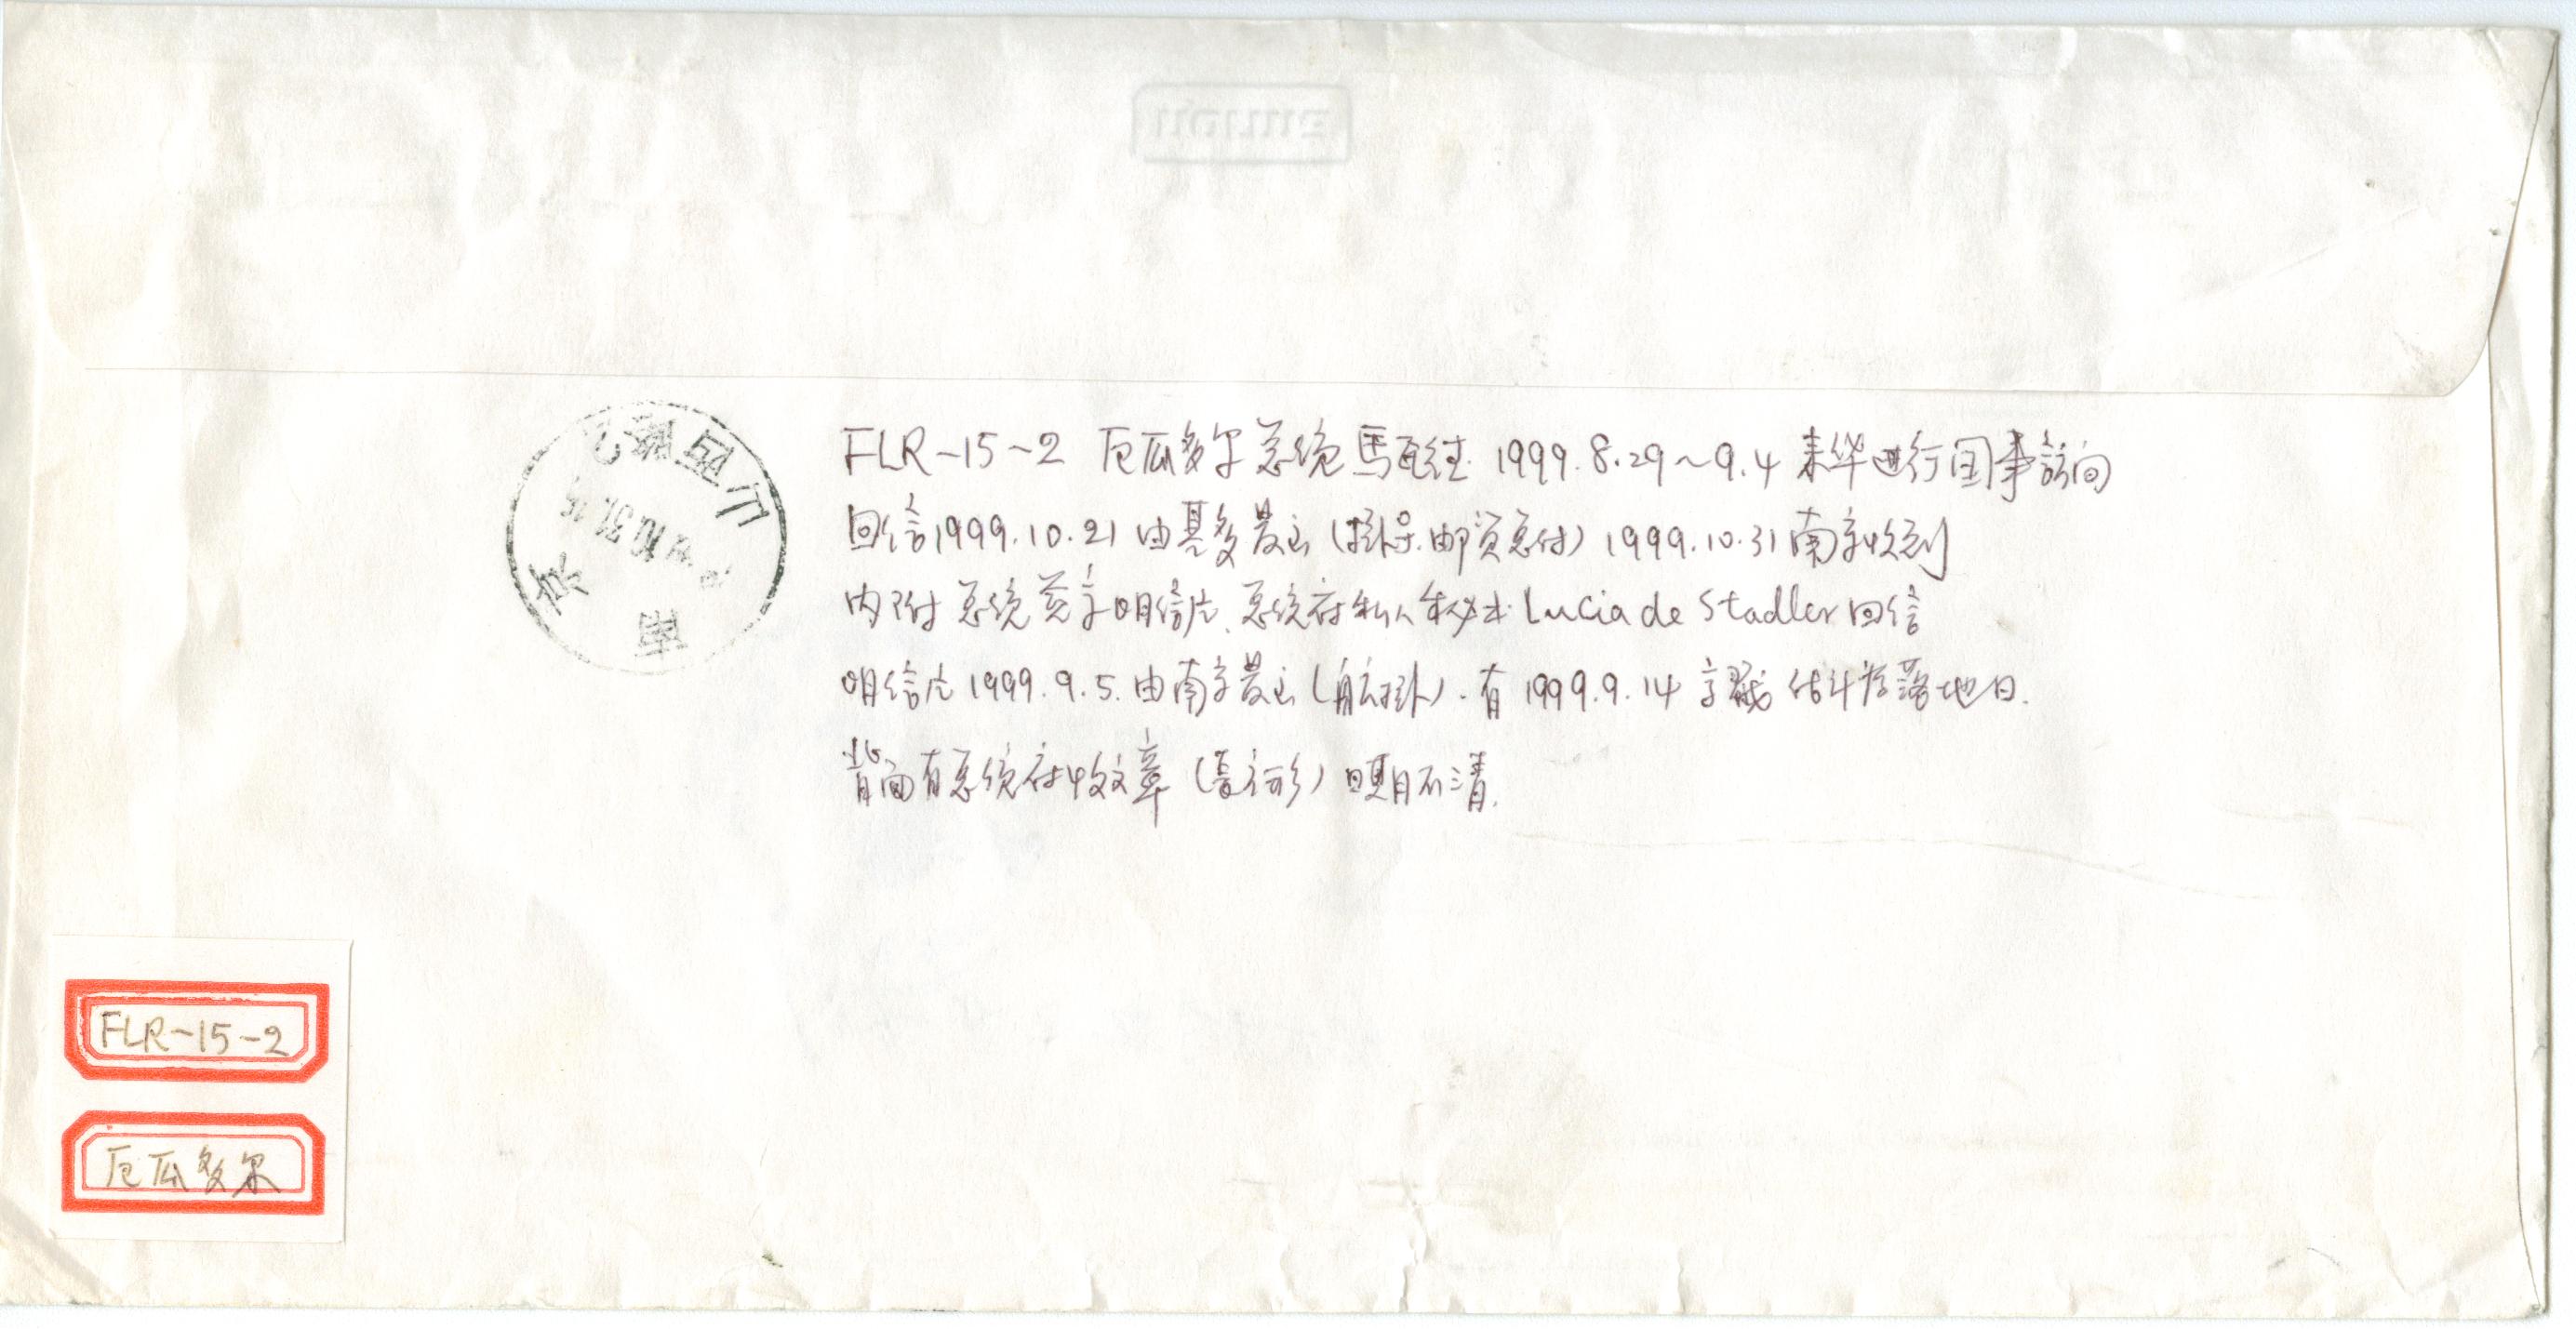 FLR-15-2 厄瓜多尔总统馬瓦德 1999.8.29～9.4 来华进行国事訪问
回信1999.10.21 由基多发出（挂号.邮资总付）1999.10.31南京收到
内附总统签字明信片、总统府私人秘书 Lucia de Stadler 回信
明信片1999.9.5.由南京发出（航挂）.有1999.9.14 字戳 估计为落地日.
背面有总统府收文章（长方形）日期不清.
南京
山西路
FLR-15-2
厄瓜多尔